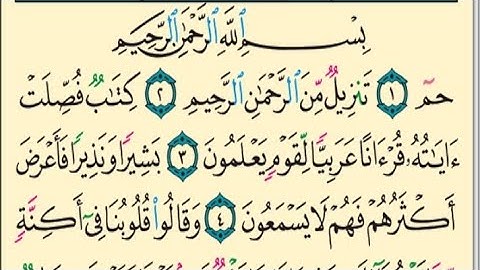 بِسْمِ ٱللَّهِ ٱلرَّحْمَٰنِ ٱلرَّحِيمِ
حمٓ ١ تَنزِيلٌ مِّنَ ٱلرَّحْمَٰنِ ٱلرَّحِيمِ ٢ كِتَٰبٌ فُصِّلَتْ
ءَايَٰتُهُۥ قُرْءَانًا عَرَبِيًّا لِّقَوْمٍ يَعْلَمُونَ ٣ بَشِيرًا وَنَذِيرًا فَأَعْرَضَ
أَكْثَرُهُمْ فَهُمْ لَا يَسْمَعُونَ ٤ وَقَالُوا۟ قُلُوبُنَا فِىٓ أَكِنَّةٍ